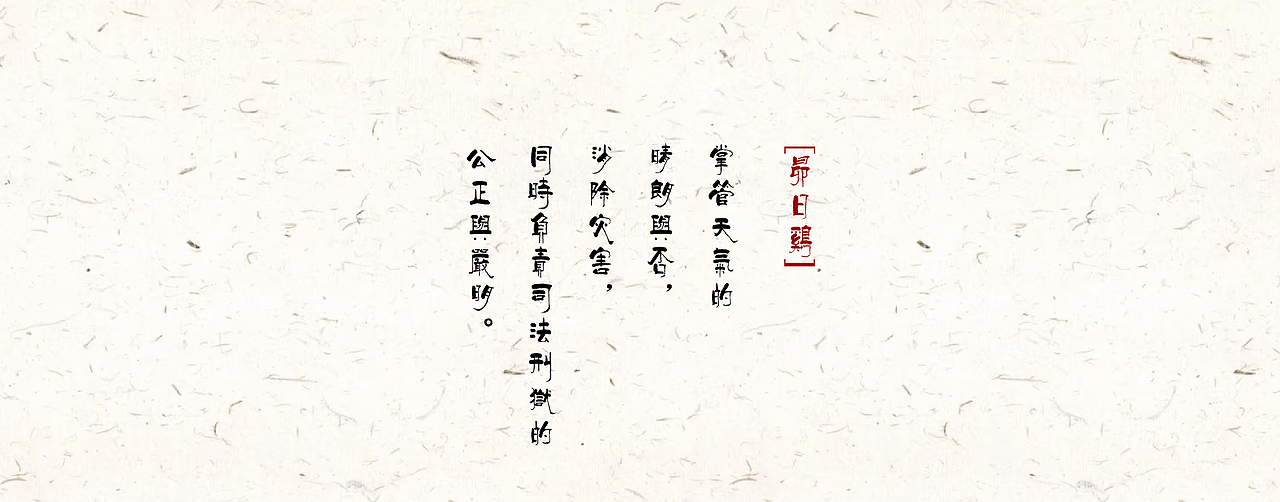 [昴日鷄]
掌管天氣的
晴朗與否，
沙除灾害，
同時負責司法刑獄的
公正與嚴明。